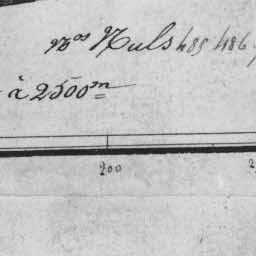 Nos Nuls 485 486
à 2500m
200
2